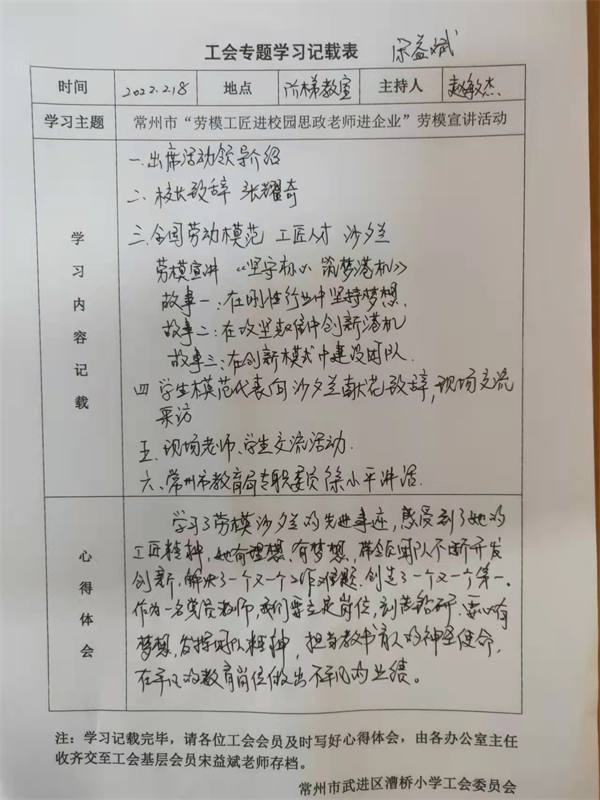 工会专题学习记载表 宋益斌
时间 2022.2.18 地点 阶梯教室 主持人 赵敏杰
学习主题 常州市“劳模工匠进校园思政老师进企业”劳模宣讲活动
学习内容记载
一.出席活动领导介绍
二、校长致辞 张耀奇
三.全国劳动模范 工匠人才 沙夕兰
劳模宣讲 《坚守初心 筑梦港机》
故事一:在刚性行业中坚持梦想.
故事二:在攻坚克难中创新港机
故事三:在创新模式中建设团队.
四 学生模范代表向沙夕兰献花致辞,现场交流
采访
五.现场老师、学生交流活动.
六、常州市教育局专职委员徐小平讲话.
心得体会
学习了劳模沙夕兰的先进事迹,感受到了她的
工匠精神,她有理想、有梦想,带领团队不断开发
创新,解决了一个又一个工作难题,创造了一个又一个第一。
作为一名党员教师,我们要立足岗位,刻苦钻研,要心有
梦想,发挥团队精神,担当教书育人的神圣使命,
在平凡的教育岗位做出不平凡的业绩。
注:学习记载完毕,请各位工会会员及时写好心得体会,由各办公室主任
收齐交至工会基层会员宋益斌老师存档。
常州市武进区漕桥小学工会委员会